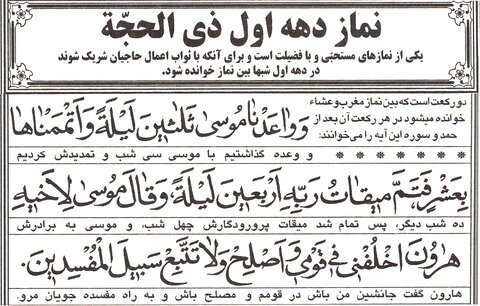 نماز دهه اول ذی الحجّة
یکی از نمازهای مستحبّی و با فضیلت است و برای آنکه با ثواب اعمال حاجیان شریک شوند
در دهه اول شبها بین نماز خوانده شود.
دو رکعت است که بین نماز مغرب و عشاء
خوانده میشود در هر رکعت آن بعد از
حمد و سوره این آیه را می‌خوانند:
وَ وٰاعَدْنٰا مُوسىٰ ثَلٰثينَ لَيْلَةً وَ اَتْمَمْنٰاهٰا
* * * * * * * و وعده گذاشتیم با موسی سی شب و تمدیدش کردیم
بِعَشْرٍ فَتَمَّ ميقٰاتُ رَبِّهِ اَرْبَعينَ لَيْلَةً، وَ قٰالَ مُوسىٰ لِاَخيهِ
ده شب دیگر، پس تمام شد میقات پرورودگارش چهل شب، و موسی به برادرش
هٰرُونَ اخْلُفْنى فى قَوْمى وَ اَصْلِحْ وَلاٰ تَتَّبِعْ سَبيلَ الْمُفْسِدينَ.
هارون گفت جانشین من باش در قومم و مصلح باش و به راه مفسده جویان مرو.